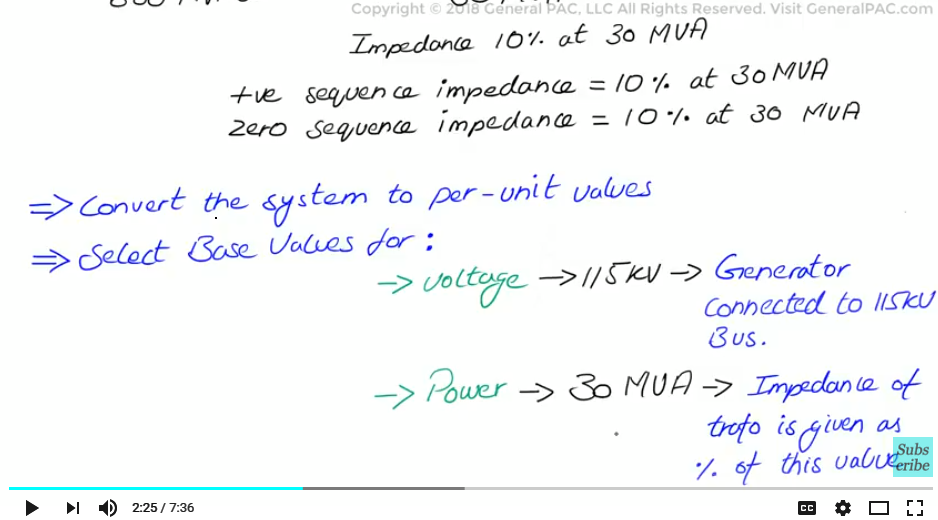 Copyright © 2018 General PAC, LLC All Rights Reserved. Visit GeneralPAC.com
Impedance 10% at 30 MVA
+ve sequence impedance = 10% at 30 MVA
Zero sequence impedance = 10% at 30 MVA
⇒ Convert the system to per-unit values
⇒ Select Base Values for :
→ Voltage → 115 KV → Generator
connected to 115KV
Bus.
→ Power → 30 MVA → Impedance of
trafo is given as
% of this value
Subs
cribe
2:25 / 7:36
CC